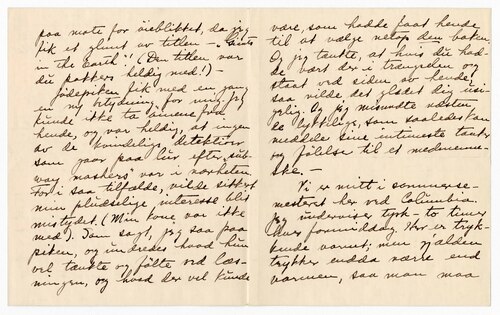 paa mote for øieblikket, da jeg
fik et glimt av titlen — "Giants
in the Earth". (Den titlen var
du pokkers heldig med!) —
Jødepiken fik med en gang
en ny betydning for mig. Jeg
kunde ikke ta øinene fra
hende, og var heldig, at ingen
av de kvindelige detektiver
som gaar paa lur efter "sub-
way mashers" var i nærheten.
For i saa tilfælde, vilde sikkert
min pludselige interesse blit
mistydet. (Min kone var ikke
med). Som sagt, jeg saa paa
piken, og undredes hvad hun
vel tænkte og følte ved læs-
ningen, og hvad der vel kunde
være, som hadde faat hende
til at vælge netop den boken.
Og jeg tænkte, at hvis du had-
de vært der i trængselen og
staat ved siden av hende,
saa vilde det glædet dig usi-
gelig. Og jeg misundte næsten
de lykkelige, som saaledes kan
meddele sine intimeste tanker
og følelse til et medmenne-
ske. —
Vi er midt i sommerse-
mesteret her ved Columbia.
Jeg underviser tysk — to timer
hver formiddag. Her er tryk-
kende varmt; men gjælden
trykker endda værre end
varmen, saa man maa